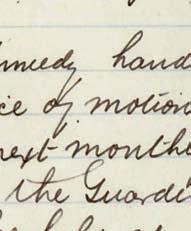 nnedy hand
ice of motion
next monthe
the Guardi